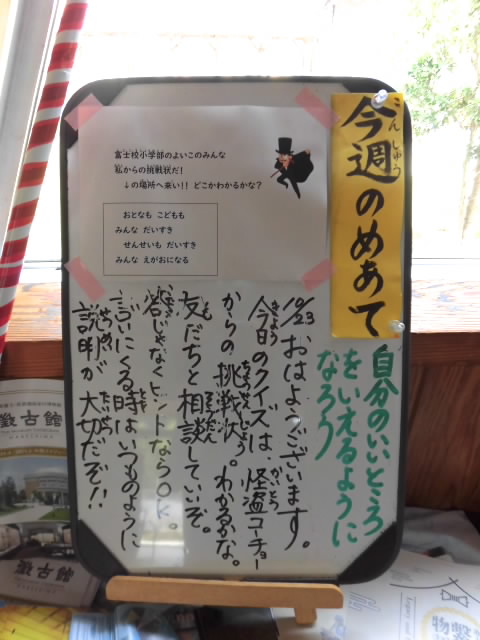 今週のめあて
こんしゅう
自分のいいところ
をいえるように
なろう
富士校小学部のよいこのみんな
私からの挑戦状だ!
↓の場所へ来い!! どこかわかるかな?
おとなも こどもも
みんな だいすき
せんせいも だいすき
みんな えがおになる
10/23 おはようございます。
今日のクイズは、怪盗コーチョー
からの挑戦状。わかるかな。
友だちと相談していいぞ。
答じゃなくヒントならOK。
言いにくる時はいつものように
説明が大切だぞ!!
徴古館
徴古館